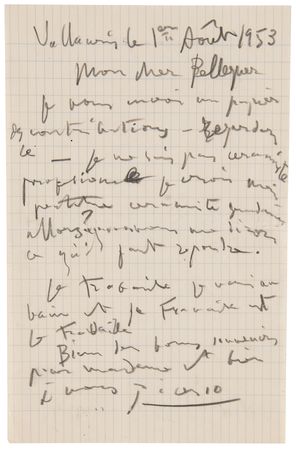 Vallauris le 1er Août 1953
Mon cher Pellequer
Je vous envoi un papier
des contributions – Regardez
le – je ne suis pas ceramiste
profesionel je crois
peintre ceramiste
me dire
ce qu'il faut repondre.
Je travaille je vais au
bain et je travaille et
je travaille
Bien des bons souvenirs
pour madame et bien
à vous Picasso